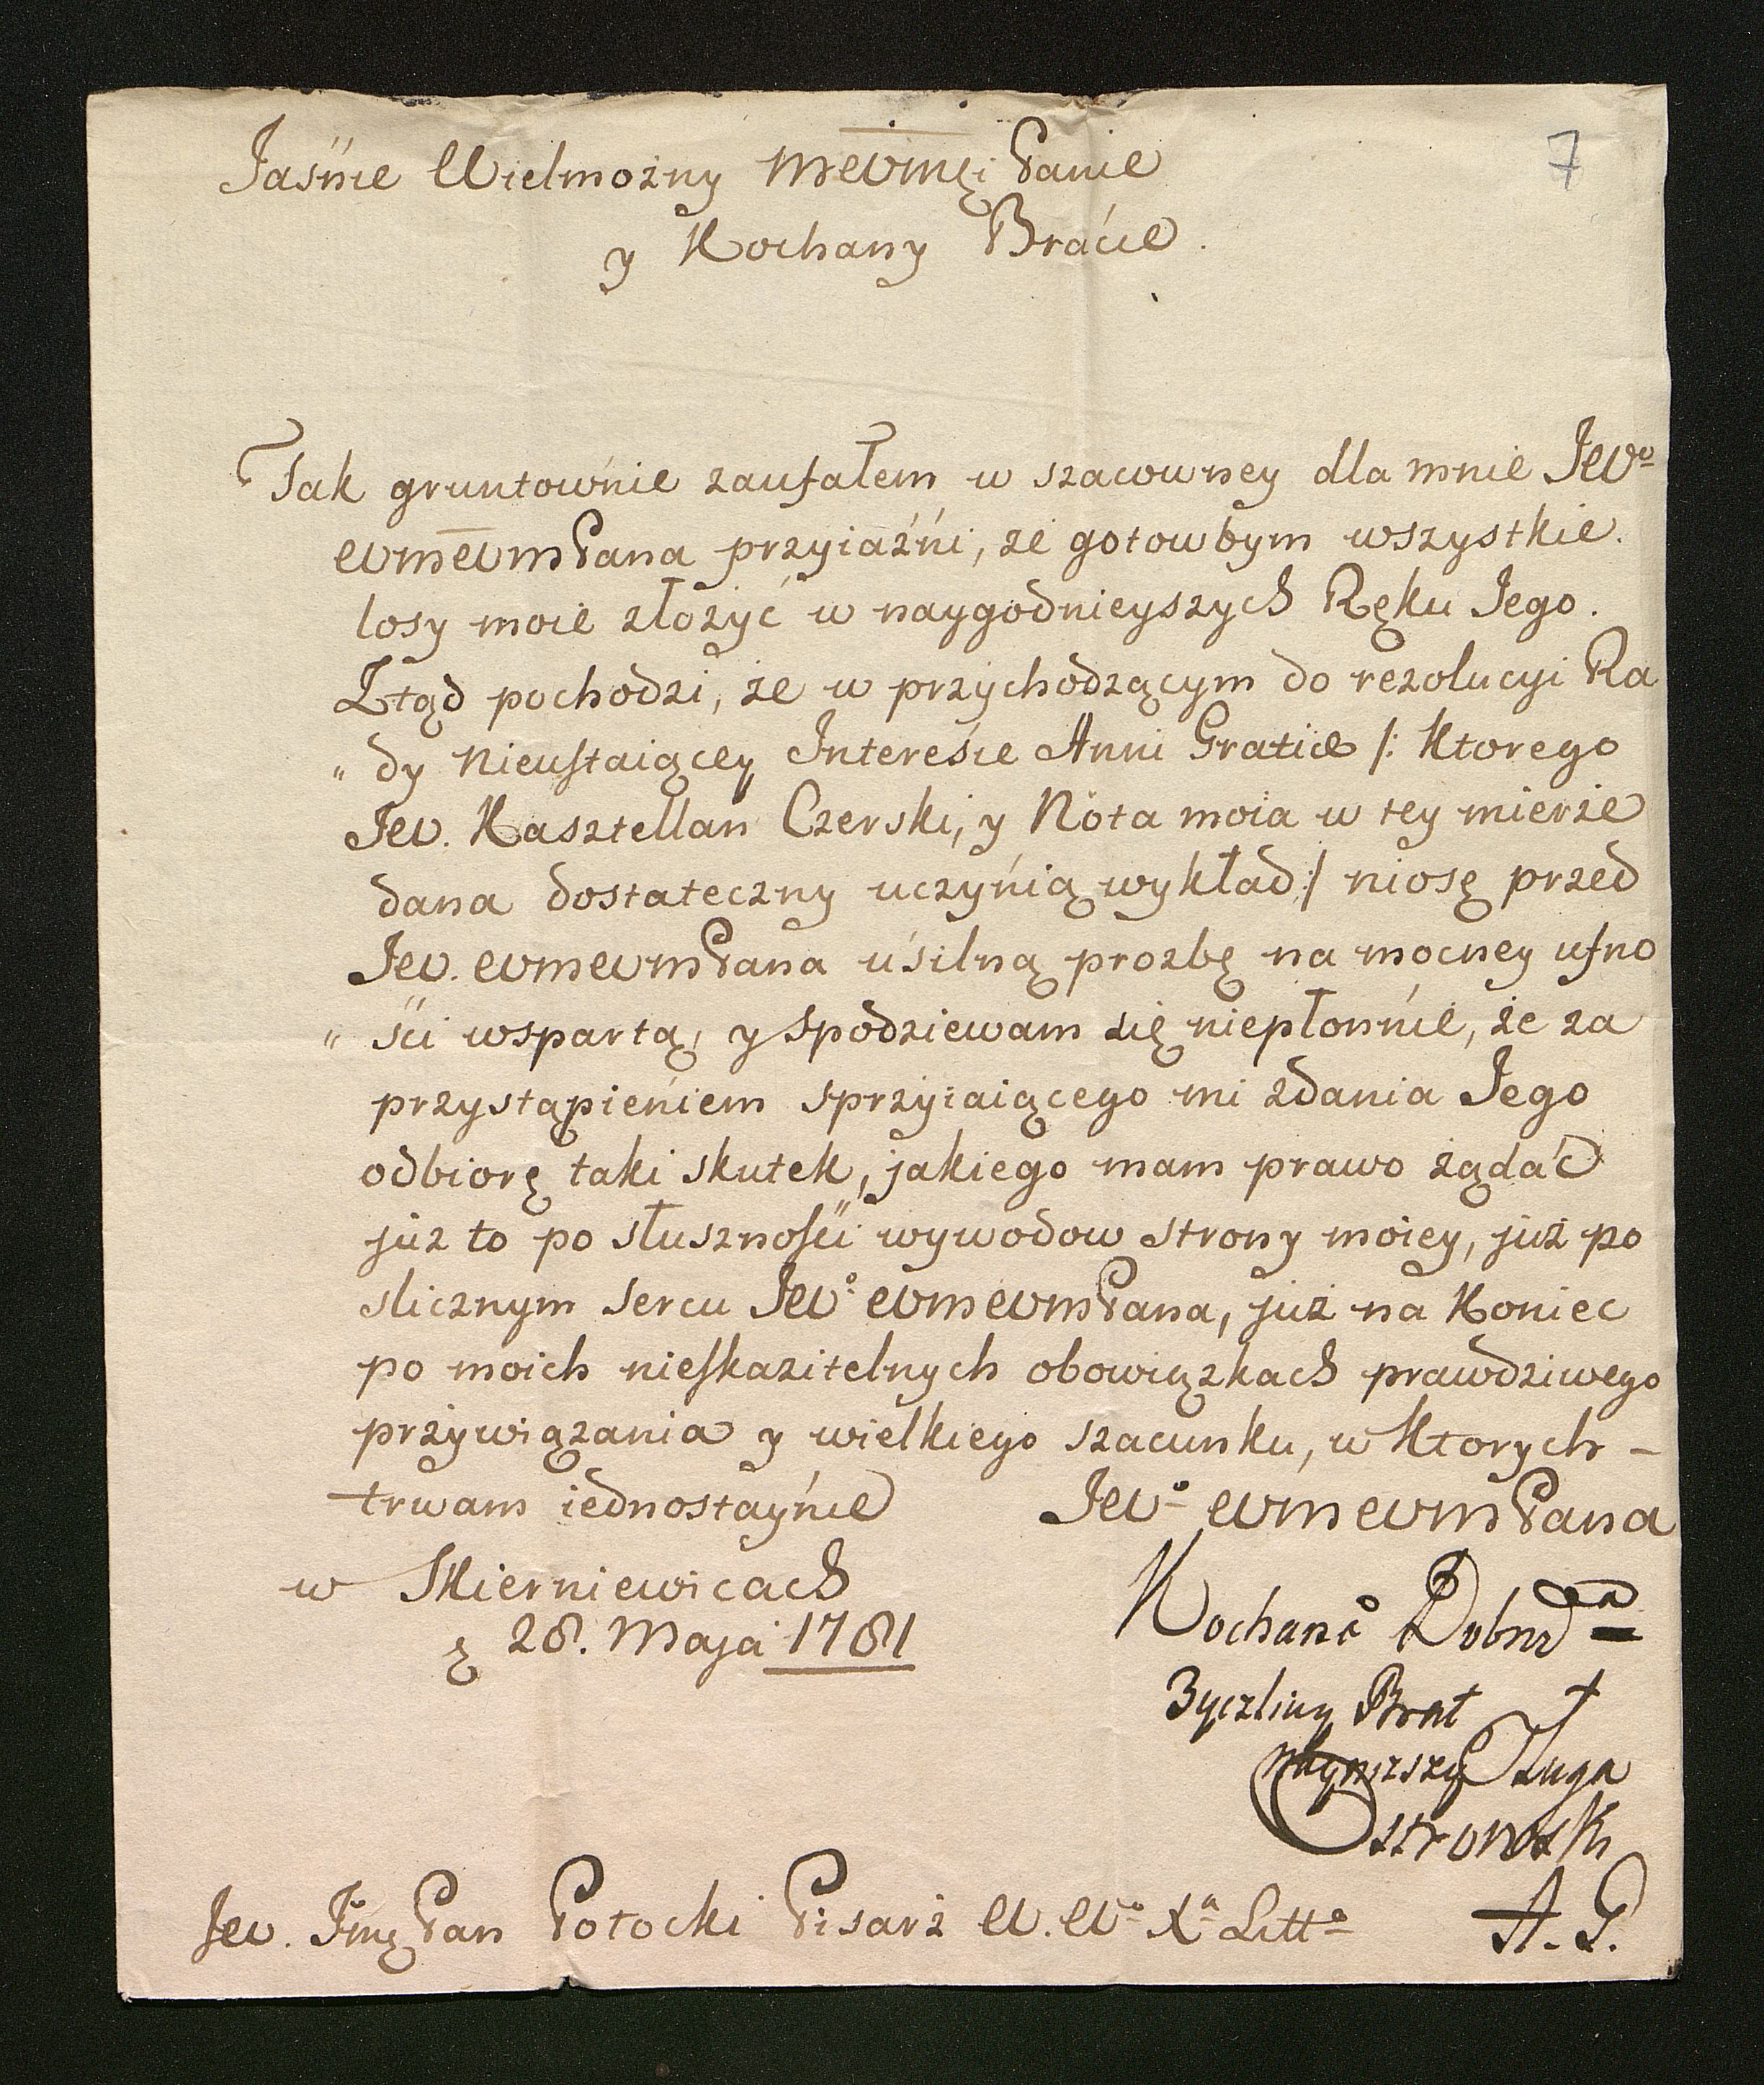 7
Jaśnie Wielmożny MCWMCi Panie
y Kochany Bracie.
Tak gruntownie zaufałem w szacowney dla mnie JWo
WMCWMPana przyiaźni, że gotowbym wszystkie
losy moie złożyć w naygodnieyszych Ręku Jego.
Ztąd pochodzi, że w przychodzącym do rezolucyi Ra
„ dy Nieustaiącey Interesie Anni Gratiæ /: Ktorego
JW. Kasztellan Czerski, y Nota moia w tey mierze
dana dostateczny uczynią wykład :/ niosę przed
JW. WMCWMPana usilną prozbę na mocney ufno
„ ści wspartą, y spodziewam się niepłonnie, że za
przystąpieniem sprzyiaiącego mi zdania Jego
odbiorę taki skutek, jakiego mam prawo żądać
już to po słuszności wywodow strony moiey, już po
slicznym sercu JWo WMCWMPana, już na Koniec
po moich nieskazitelnych obowiązkach prawdziwego
przywiązania y wielkiego szacunku, w Ktorych –
trwam iednostaynie JWo WMCWMPana
w Skierniewicach
28. Maja 1781
Kochano Dobrda
Zyczliwy Brat
naynizszy Sługa
Ostrowski
A. G.
JW. Jmć Pan Potocki Pisarz W. Wo Xa Litto